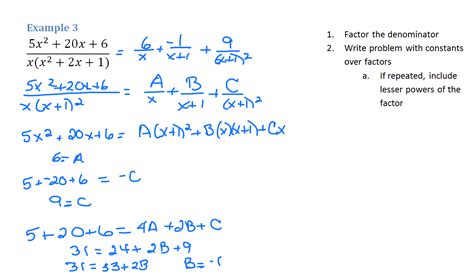 Example 3
5x² + 20x + 6 / x(x² + 2x + 1) = 6/x + -1/x+1 + 9/(x+1)²
5x²+20x+6 / x(x+1)² = A/x + B/x+1 + C/(x+1)²
5x²+20x+6 = A(x+1)²+B(x)(x+1)+Cx
6=A
5+-20+6 = -C
9=C
5+20+6=4A+2B+C
31=24+2B+9
31=33+2B B=-1
1. Factor the denominator
2. Write problem with constants
over factors
a. If repeated, include
lesser powers of the
factor